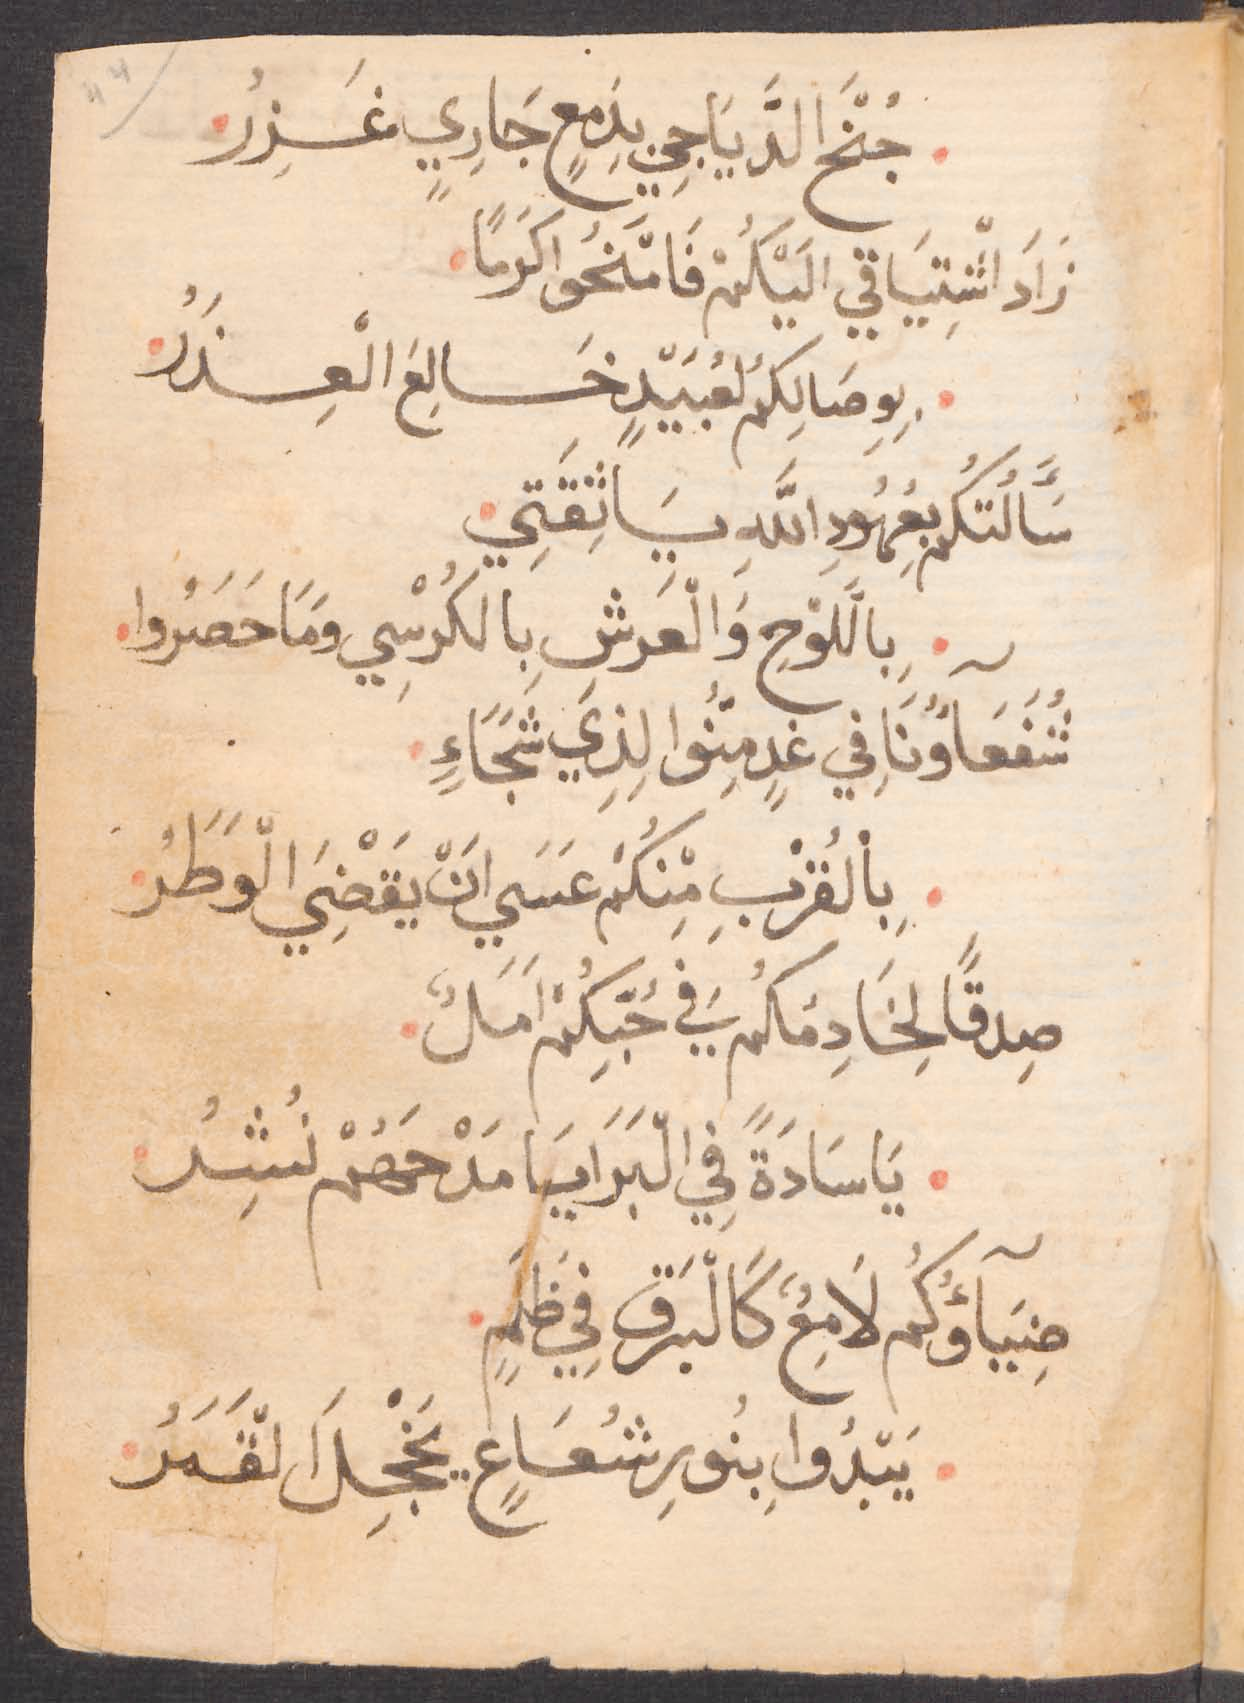 جُنْحَ الدَّيَاجِي بِدَمْعٍ جَارِيٍ غَزِرُ
زَادَ اشْتِيَاقِي الَيْكُمْ فَامْنَحُوا كَرَمًا
بِوِصَالِكِمْ لعُبَيْدٍ خَالِعَ الْعِذَرُ
سَأَلْتُكُم بِعُهُودِ اللَّهِ يَا ثِقَتِي
بِاللَّوْحِ وَالْعَرْشِ بِالكُرْسِي وَمَا حَصَرُوا
شُفَعَآوُنَا فِي غَدٍ مِنُّوا لِذِي شَجَاءٍ
بِالْقُرْبِ مِنْكُمْ عَسَي انْ يَقْضِيَ الْوَطَرُ
صِدقًا لِخَادِمكُم فِي حُبِّكُمْ اَمَلٌ
يَا سَادَةً فِي الْبَرَايَا مَدْحَهُمْ نُشِدُ
ضِيَآؤُكُم لَامِعٌ كَالْبَرَقِ فِي ظُلَمٍ
يَبْدُوا بِنُورِ شُعَاعٍ يَخْجِلَ الْقَمَرُ